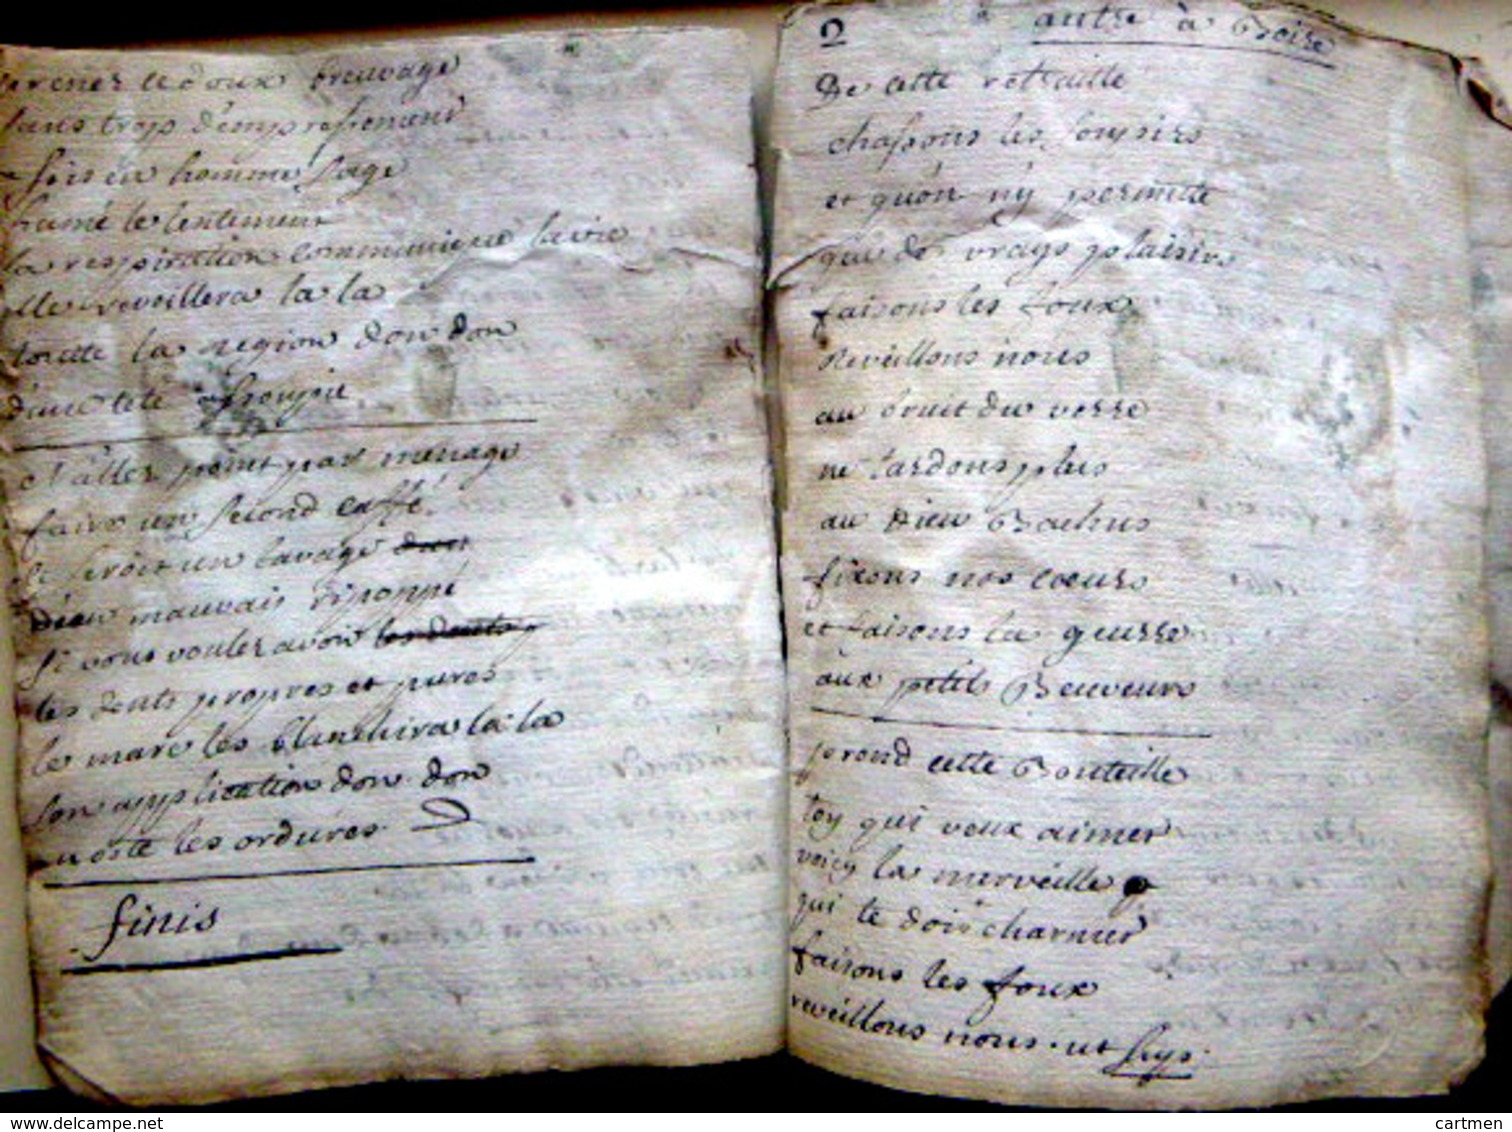 prenez ce doux breuvage
sans trop d'empressement
en homme sage
humé le lentement
la respiration communique la vie
elle reveillera la la
toutte la region don don
d'une teté
et n'allez point par menage
faire un second caffé
ce seroit un lavage
d'eau mauvais
si vous voulez avoir
les dents propres et pures
le marc les blanchira la la
son application don don
en oste les ordures
finis
2 autre à Boire
De cette retraitte
chassons les soupirs
et qu'on n'y permette
que de vrays plaisirs
faisons les foux
Reveillons nous
au bruit du verre
ne tardons plus
au Dieu Bachus
fixons nos cœurs
et faisons la guerre
aux petits Beuveurs
prend cette Bouteille
toy qui veux aimer
voicy la merveille
qui te doit charmer
faisons les foux
reveillons nous
cartmen